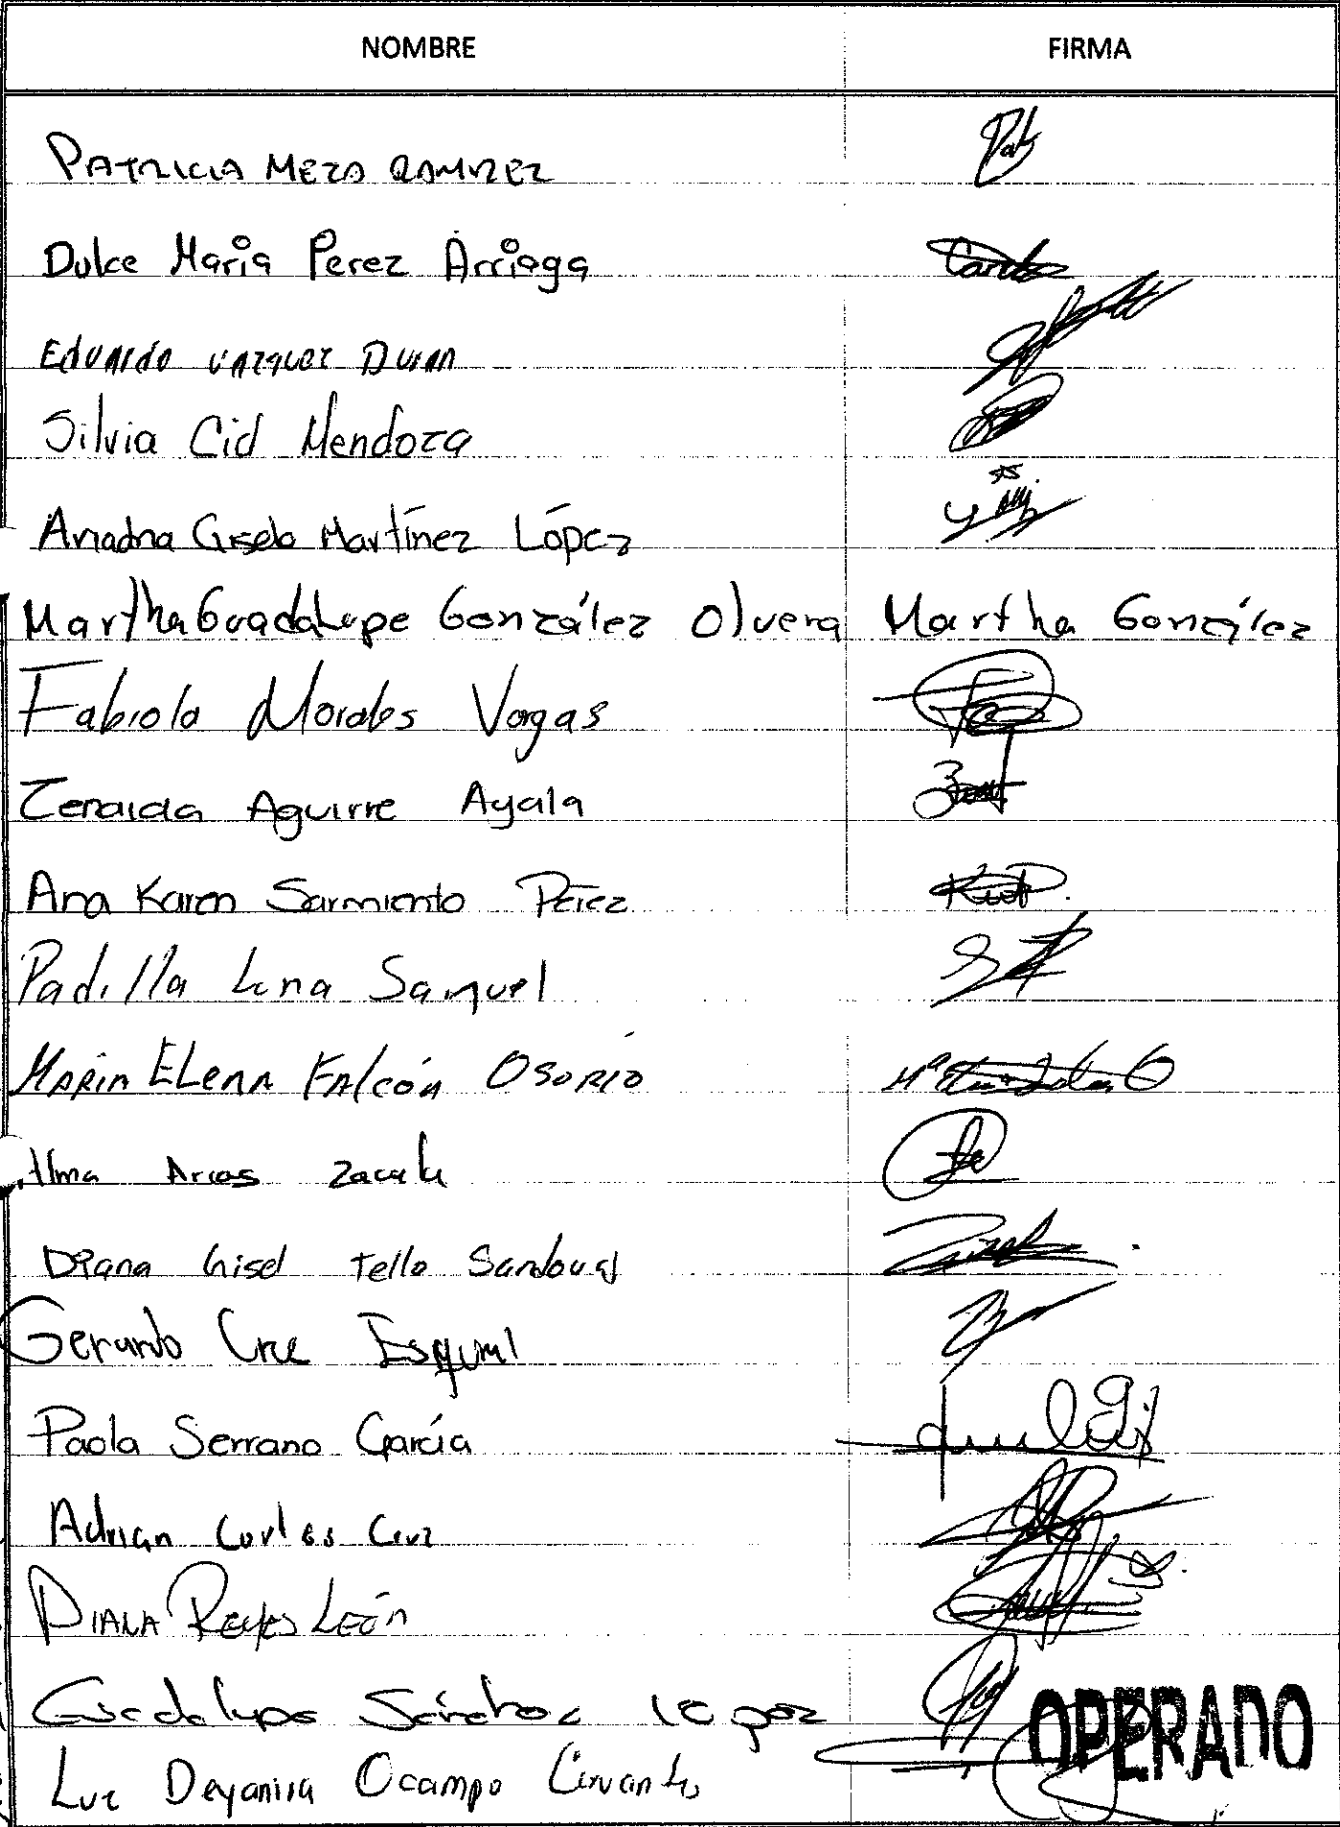 NOMBRE FIRMA
PATRICIA MEZA RAMIREZ
Dulce Maria Perez Arriaga
Eduardo Vazquez Duran
Silvia Cid Mendoza
Ariadna Gisela Martínez López
Martha Guadalupe González Olvera Martha González
Fabiola Morales Vargas
Zenaida Aguirre Ayala
Ana Karen Sarmiento Pérez
Padilla Luna Samuel
MARIA ELENA FALCÓN OSORIO
Alma Arcos
Diana Gisel Tello Sandoval
Gerardo Cruz Esquivel
Paola Serrano García
Adrian Cortes Cruz
DIANA REYES LEÓN
Guadalupe Sánchez López
OPERADO
Luz Deyanira Ocampo Cervantes